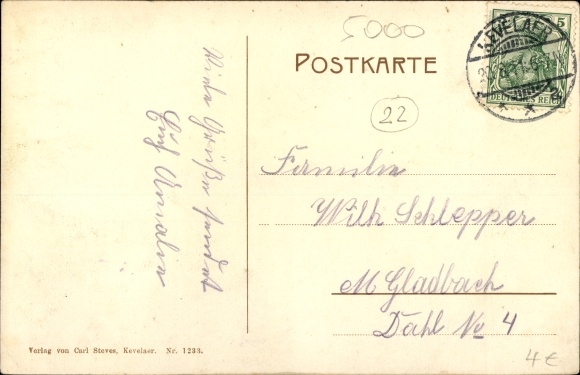 5000
POSTKARTE
KEVELAER
5
DEUTSCHES REICH
22
Viele Grüße sendet
Euch Amalia
Familie
Wilh Schlepper
M Gladbach
Dahl No 4
Verlag von Carl Steves, Kevelaer. Nr. 1233.
4 €